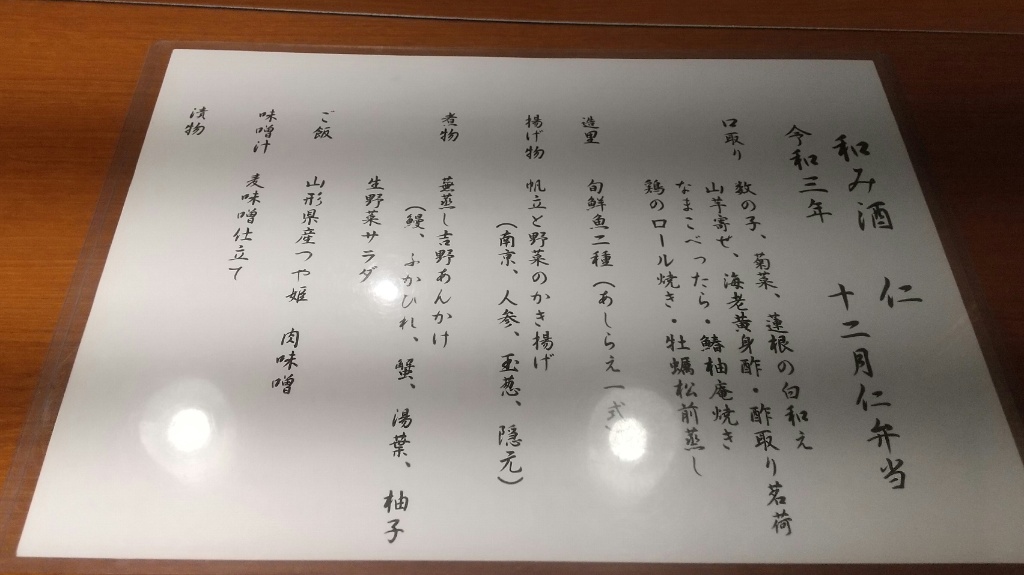 和み酒 仁
令和三年 十二月仁弁当
口取り 数の子、菊菜、蓮根の白和え
山芋寄せ、海老黄身酢・酢取り茗荷
なまこべったら・鰆柚庵焼き
鶏のロール焼き・牡蠣松前蒸し
造里 旬鮮魚二種(あしらえ一式)
揚げ物 帆立と野菜のかき揚げ
(南京、人参、玉葱、隠元)
煮物 蕪蒸し吉野あんかけ
(鰻、ふかひれ、蟹、湯葉、柚子
生野菜サラダ
ご飯 山形県産つや姫 肉味噌
味噌汁 麦味噌仕立て
漬物